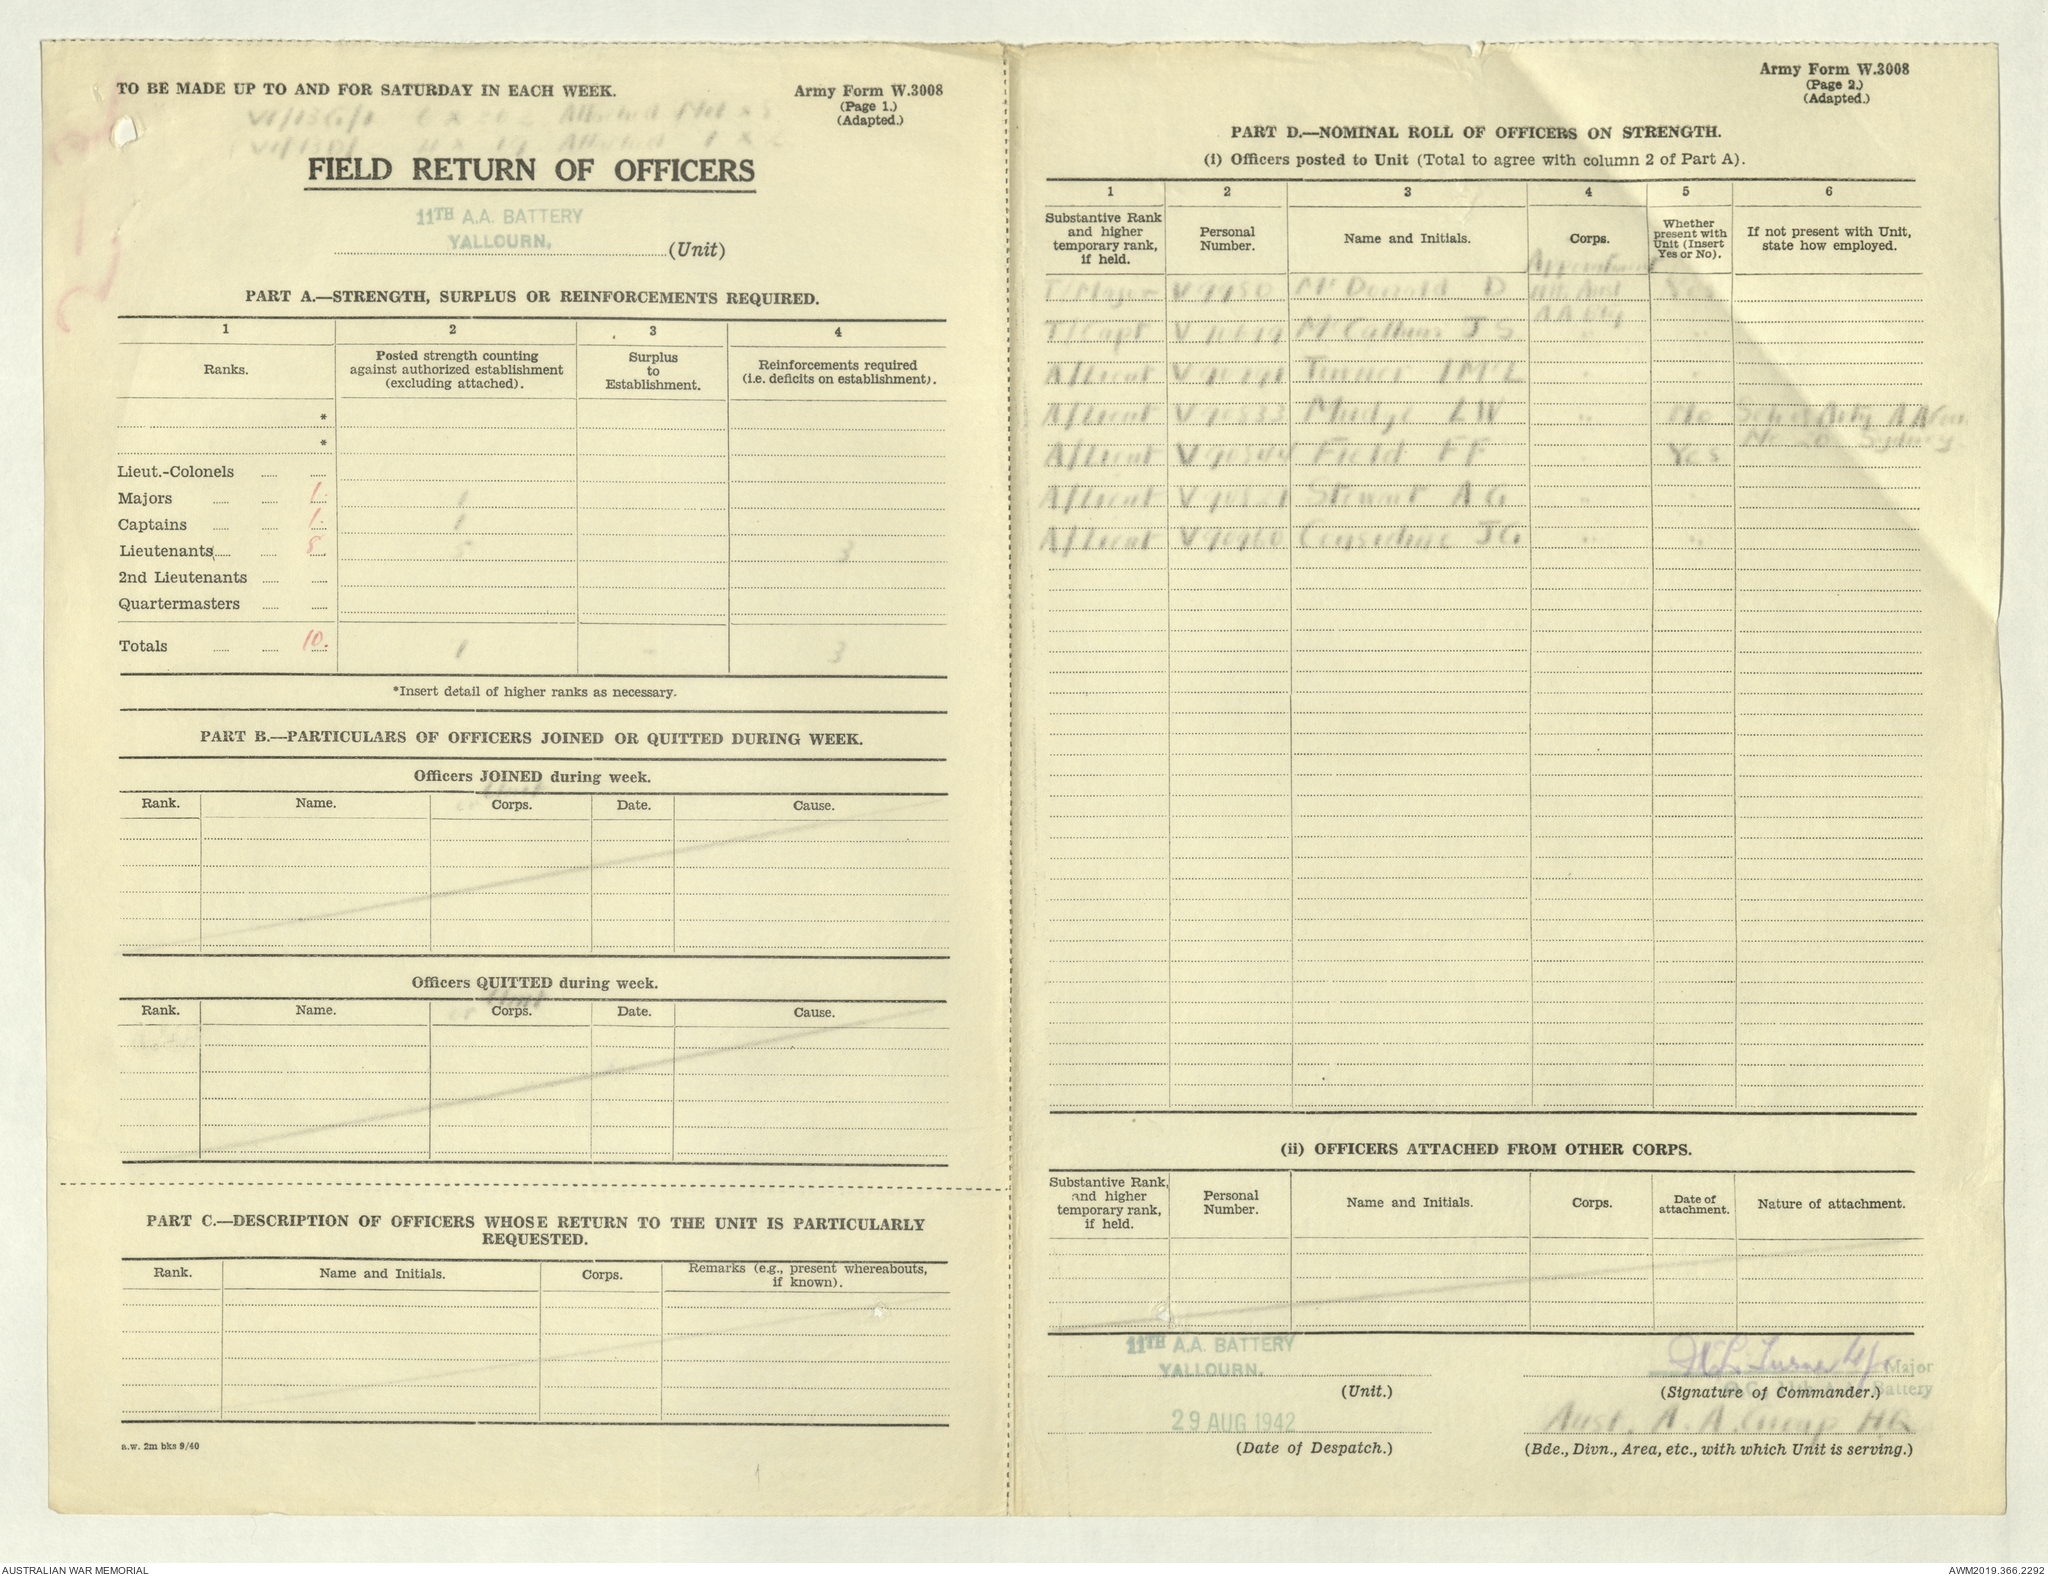 TO BE MADE UP TO AND FOR SATURDAY IN EACH WEEK.
Army Form W.3008
(Page 1.)
(Adapted.)
FIELD RETURN OF OFFICERS
11TH A.A. BATTERY
YALLOURN,
(Unit)
PART A.—STRENGTH, SURPLUS OR REINFORCEMENTS REQUIRED.
1 2 3 4
Ranks.
Posted strength counting against authorized establishment (excluding attached).
Surplus to Establishment.
Reinforcements required (i.e. deficits on establishment).
*
*
Lieut.-Colonels
Majors 1. 1
Captains 1. 1
Lieutenants 8. 5 3
2nd Lieutenants
Quartermasters
Totals 10. - 3
*Insert detail of higher ranks as necessary.
PART B.—PARTICULARS OF OFFICERS JOINED OR QUITTED DURING WEEK.
Officers JOINED during week.
or Unit
Rank. Name. Corps. Date. Cause.
Officers QUITTED during week.
or Unit
Rank. Name. Corps. Date. Cause.
PART C.—DESCRIPTION OF OFFICERS WHOSE RETURN TO THE UNIT IS PARTICULARLY
REQUESTED.
Rank. Name and Initials. Corps. Remarks (e.g., present whereabouts, if known).
a.w. 2m bks 9/40
Army Form W.3008
(Page 2.)
(Adapted.)
PART D.—NOMINAL ROLL OF OFFICERS ON STRENGTH.
(i) Officers posted to Unit (Total to agree with column 2 of Part A).
1 2 3 4 5 6
Substantive Rank and higher temporary rank, if held.
Personal Number.
Name and Initials.
Corps.
Whether present with Unit (Insert Yes or No).
If not present with Unit, state how employed.
Appointment
T/Major McDonald D Yes
T/Capt McCallum J S
A/Lieut Turner
A/Lieut Mudge L W No
Sydney.
A/Lieut Field F F Yes
A/Lieut Stewart A G
A/Lieut Considine J G
(ii) OFFICERS ATTACHED FROM OTHER CORPS.
Substantive Rank, and higher temporary rank, if held.
Personal Number.
Name and Initials.
Corps.
Date of attachment.
Nature of attachment.
11TH A.A. BATTERY
YALLOURN.
(Unit.)
29 AUG 1942
(Date of Despatch.)
Major
Battery
(Signature of Commander.)
Aust. A. A. HQ
(Bde., Divn., Area, etc., with which Unit is serving.)
AUSTRALIAN WAR MEMORIAL
AWM2019.366.2292